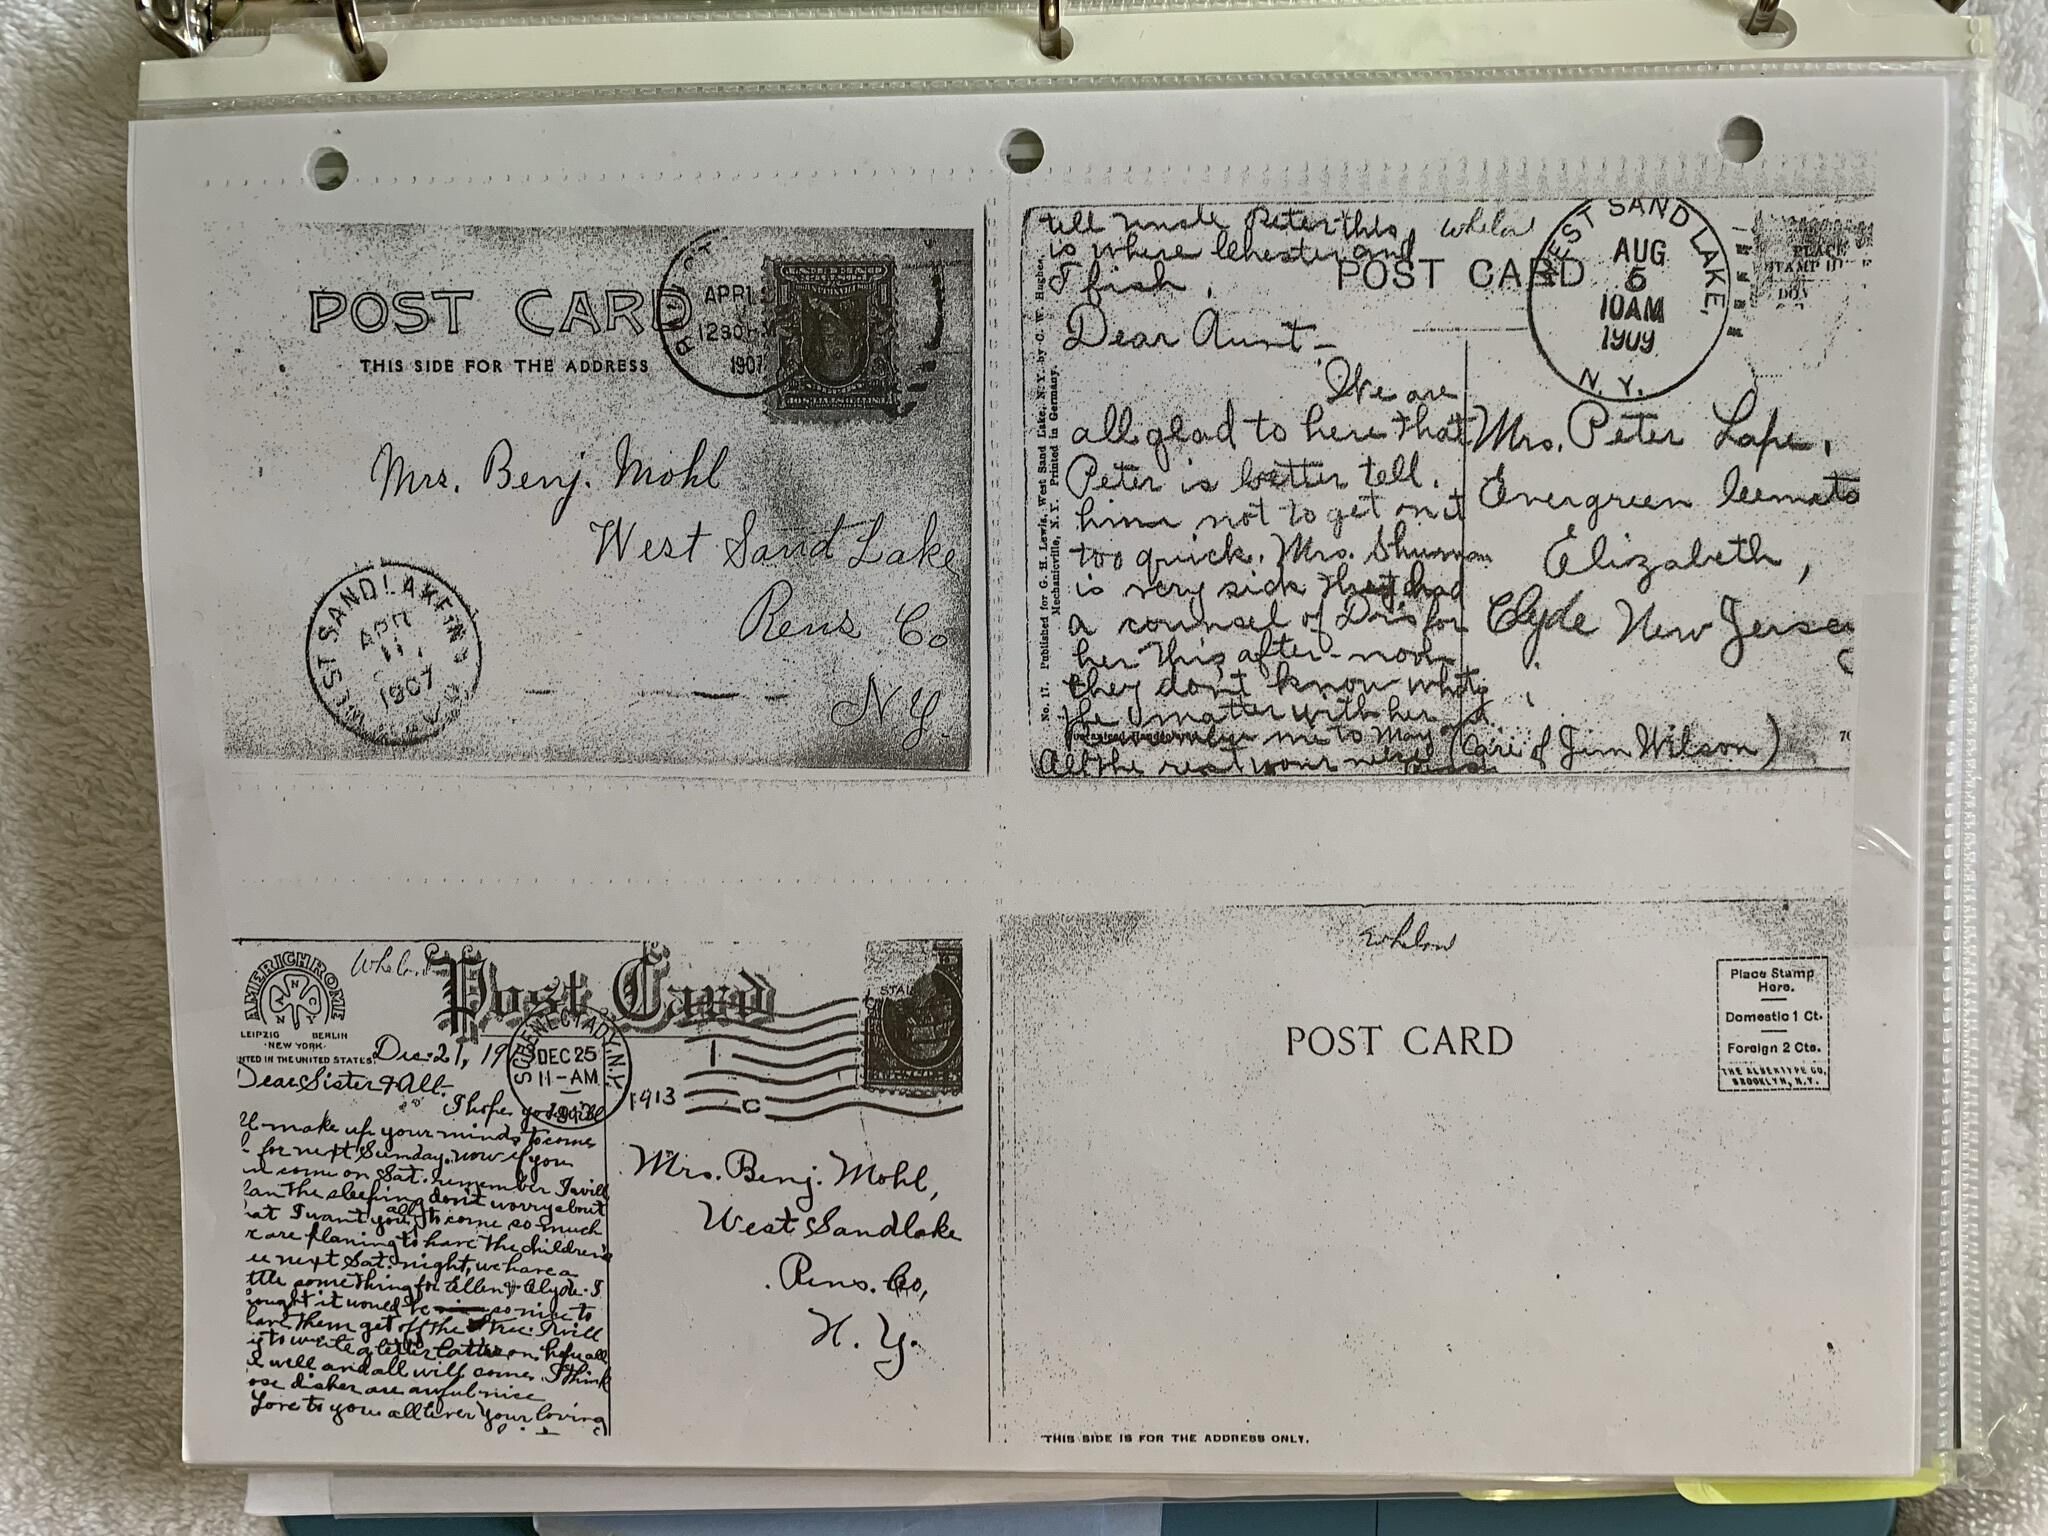 POST CARD
THIS SIDE FOR THE ADDRESS
APR
1230
1907
Mrs. Benj. Mohl
West Sand Lake
Rens Co
N.Y.
WEST SAND LAKE
APR
11
1907
tell uncle Peter this
is where Chester and
I fish.
Whelan
POST CARD
WEST SAND LAKE,
AUG
5
10AM
1909
N.Y.
PLACE
STAMP
No. 17. Published for G. H. Lewis, West Sand Lake, N. Y. by C. W. Hughes,
Mechanicville, N. Y. Printed in Germany.
Dear Aunt -
We are
all glad to here that
Peter is better tell.
him not to get on it
too quick. Mrs. Shuman
is very sick they had
a counsel of Drs for
her this after-noon
they don't know whats
the matter with her
Remember me to May
All the rest your niece
Mrs. Peter Lape,
Evergreen
Elizabeth,
Clyde New Jersey
(Care of Jim Wilson)
AMERICHROME
LEIPZIG BERLIN
NEW YORK
NTED IN THE UNITED STATES
Whelan
Post Card
SCHENECTADY, N.Y.
DEC 25
11-AM
1913
Dec. 21, 19
Dear Sister & All.
I hope you will
make up your minds to come
for next Sunday. now if you
come on Sat. remember I will
plan the sleeping don't worry about
that I want you all to come so much
are planing to have the children's
next Sat. night, we have a
something for Ellen & Clyde. I
it would be so nice to
have them get off the tree. I will
to write a letter later on. hope all
well and all will come. I think
dishes are awful nice
Love to you all ever your loving
Mrs. Benj. Mohl,
West Sandlake
Rens. Co,
N. Y.
Whelan
POST CARD
Place Stamp
Here.
Domestic 1 Ct.
Foreign 2 Cts.
THE ALBERTYPE CO.,
BROOKLYN, N.Y.
THIS SIDE IS FOR THE ADDRESS ONLY.